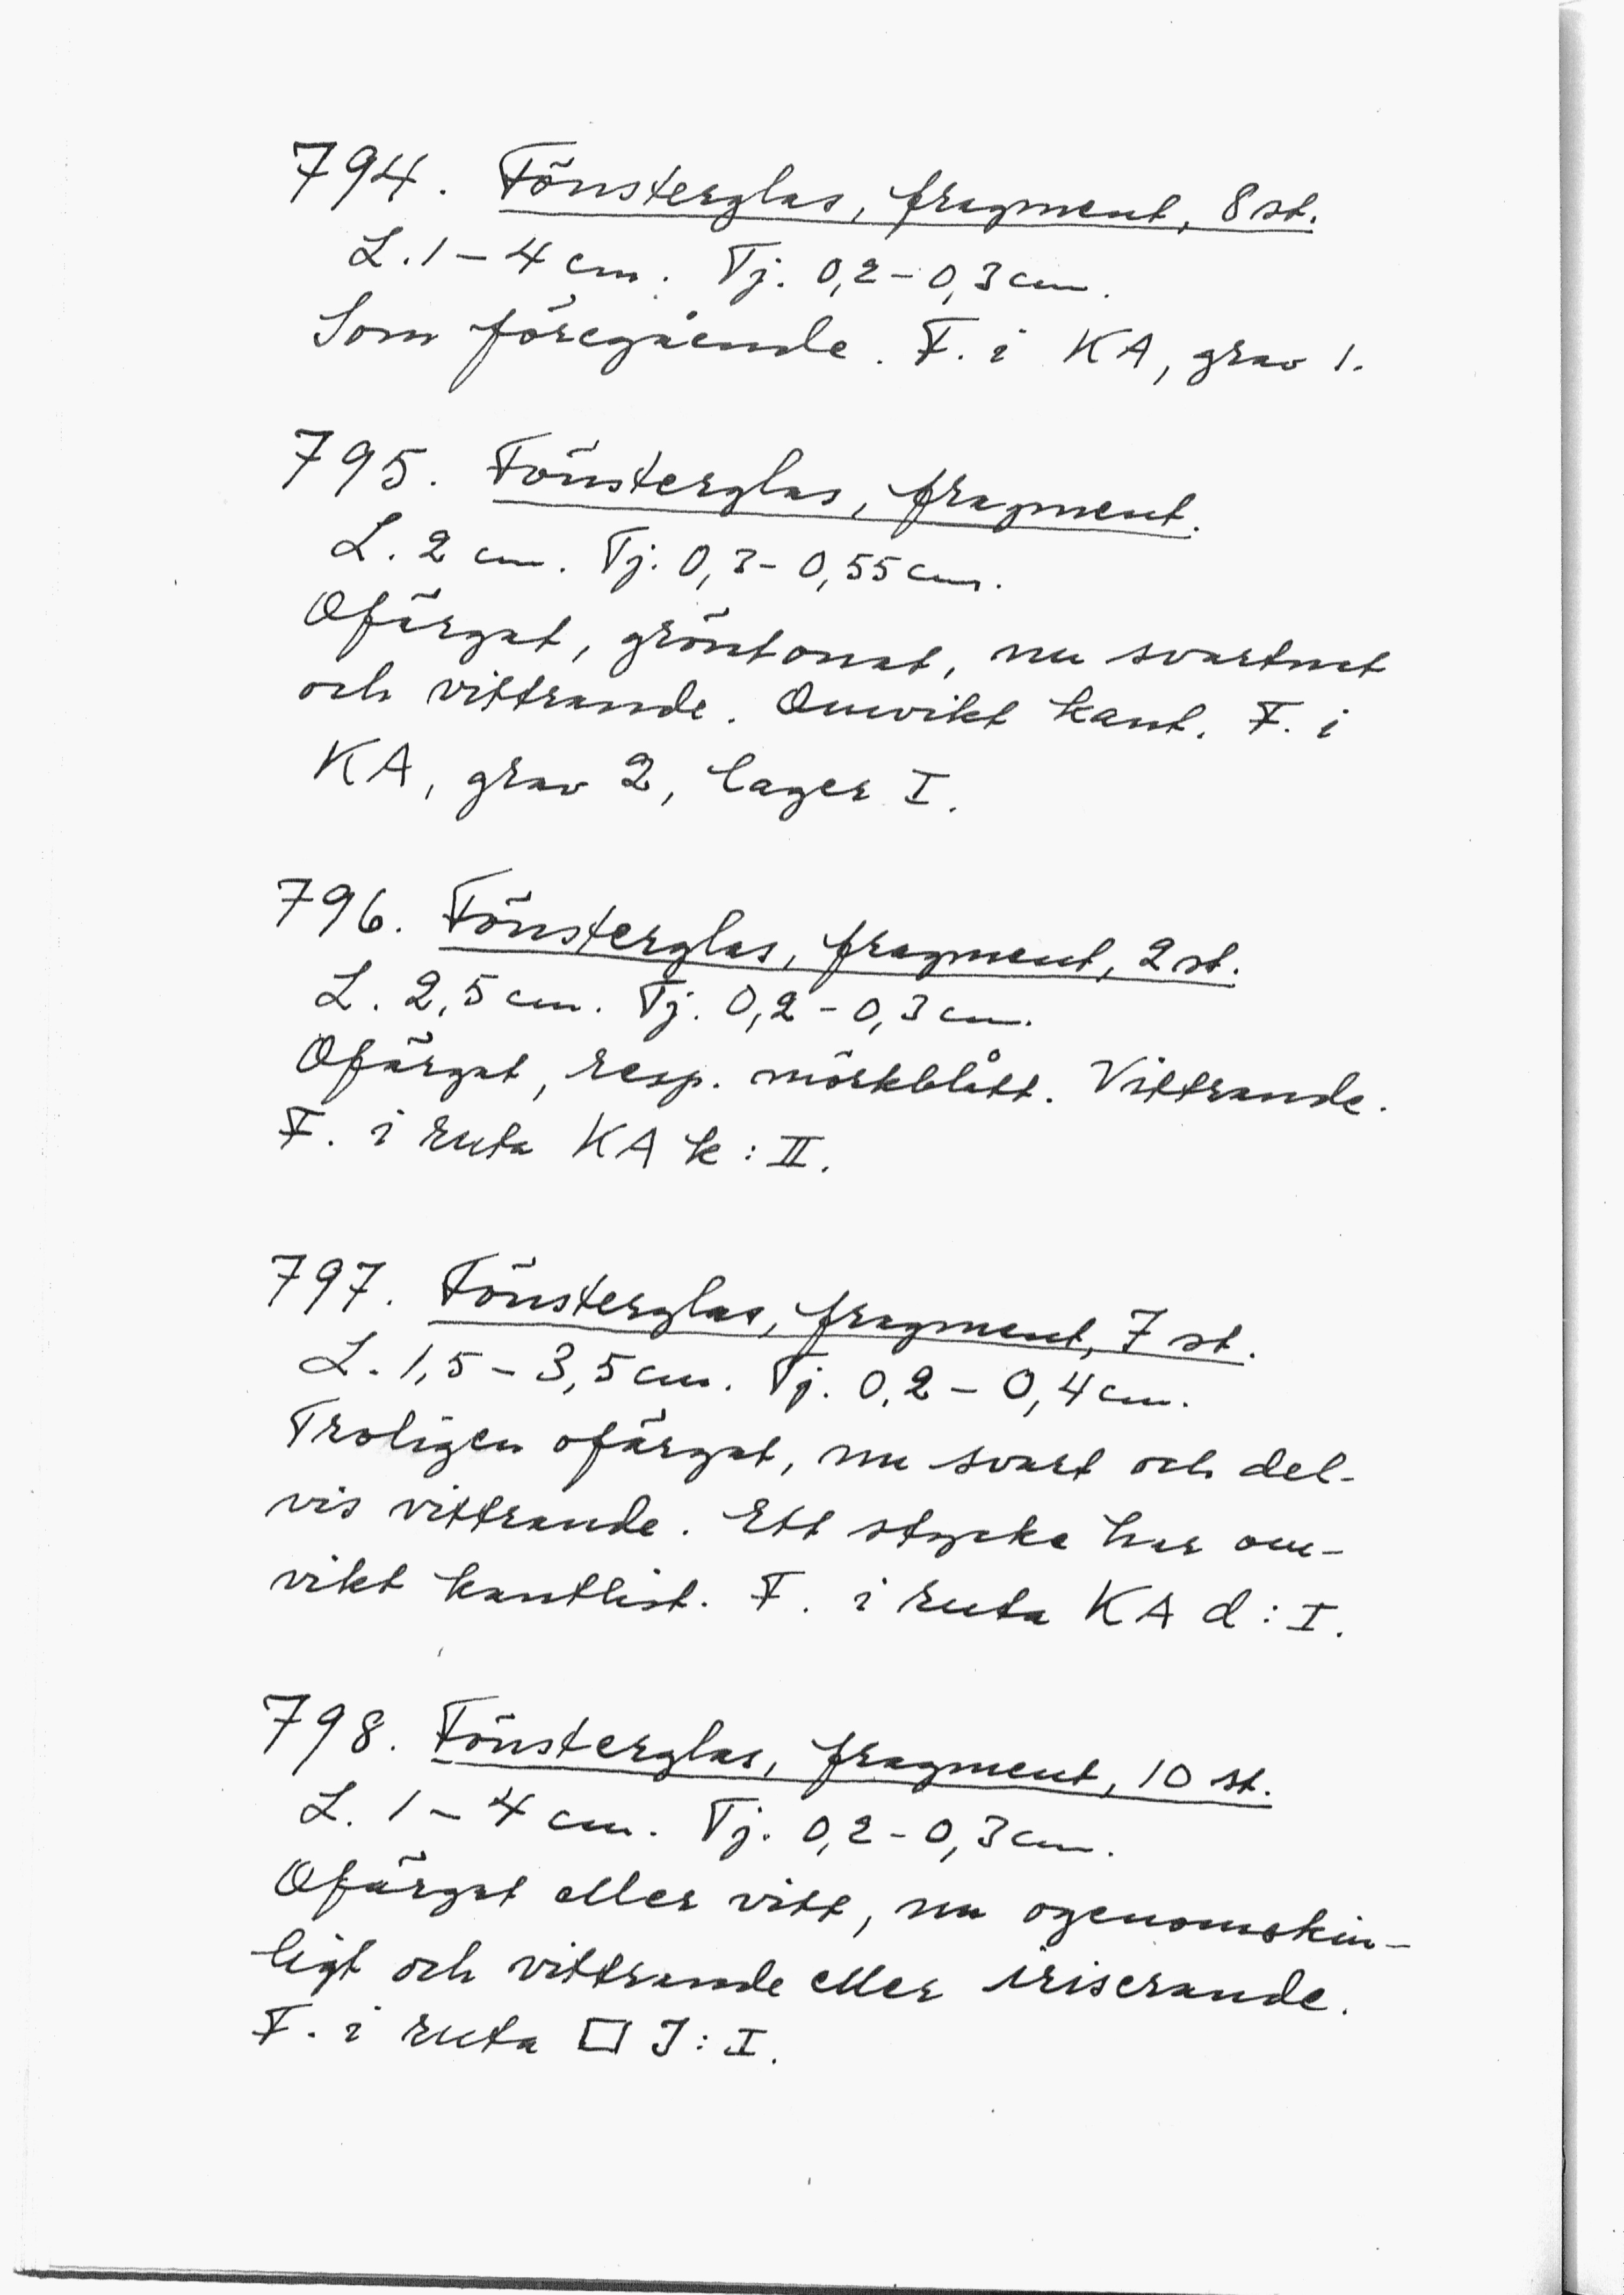 794. Fönsterglas, fragment, 8 st.
L. 1 – 4 cm. Tj. 0,2 – 0,3 cm.
Som föregående. F. i KA, grav 1.
795. Fönsterglas, fragment.
L. 2 cm. Tj. 0,3 – 0,55 cm.
Ofärgat, gröntonat, nu svartnat
och vittrande. Omvikt kant. F. i
KA, grav 2, lager I.
796. Fönsterglas, fragment, 2 st.
L. 2,5 cm. Tj. 0,2 – 0,3 cm.
Ofärgat, resp. mörkblått. Vittrande.
F. i ruta KA k : II.
797. Fönsterglas, fragment, 7 st.
L. 1,5 – 3,5 cm. Tj. 0,2 – 0,4 cm.
Troligen ofärgat, nu svart och del-
vis vittrande. Ett stycke har om-
vikt kantlist. F. i ruta KA d : I.
798. Fönsterglas, fragment, 10 st.
L. 1 – 4 cm. Tj. 0,2 – 0,3 cm.
Ofärgat eller vitt, nu ogenomskin-
ligt och vittrande eller iriserande.
F. i ruta □ J : I.